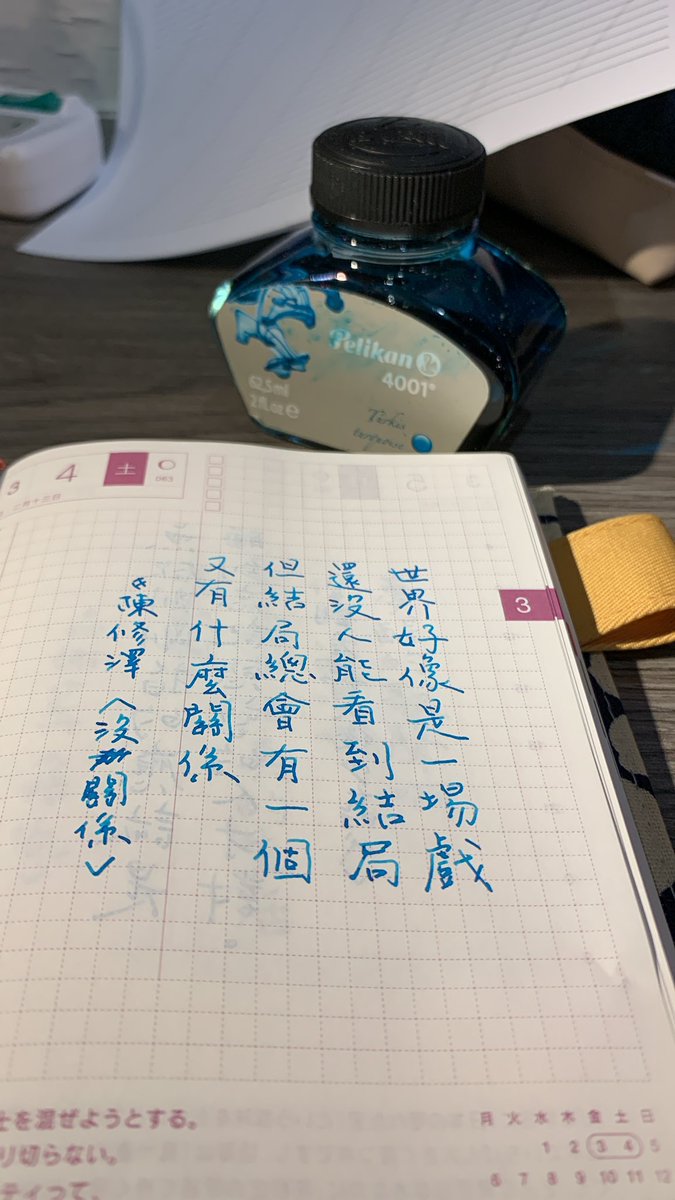 世界好像是一場戲
還沒人能看到結局
但結局總會有一個
又有什麼關係
陳修澤〈沒關係〉
Pelikan
4001®
62.5ml
2fl.oz ℮
Türkis
turquoise
3
4
土
063
二月十三日
3
士を混ぜようとする。
り切らない。
ティって、
月 火 水 木 金 土 日
1 2 3 4 5
6 7 8 9 10 11 12